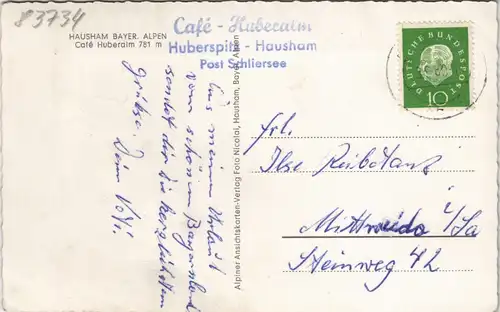 83734
HAUSHAM BAYER. ALPEN
Café Huberalm 781 m
Café - Huberalm
Huberspitz - Hausham
Post Schliersee
DEUTSCHE BUNDESPOST
10
Aus meinem Urlaub
vom schönen Bayernland
sendet dir die herzlichsten
Grüße
Dein
Alpiner Ansichtskarten-Verlag Foto Nicolai, Hausham, Bayer. Alpen
Frl.
Ilse Reibetanz
Mittweida i/Sa
Steinweg 42